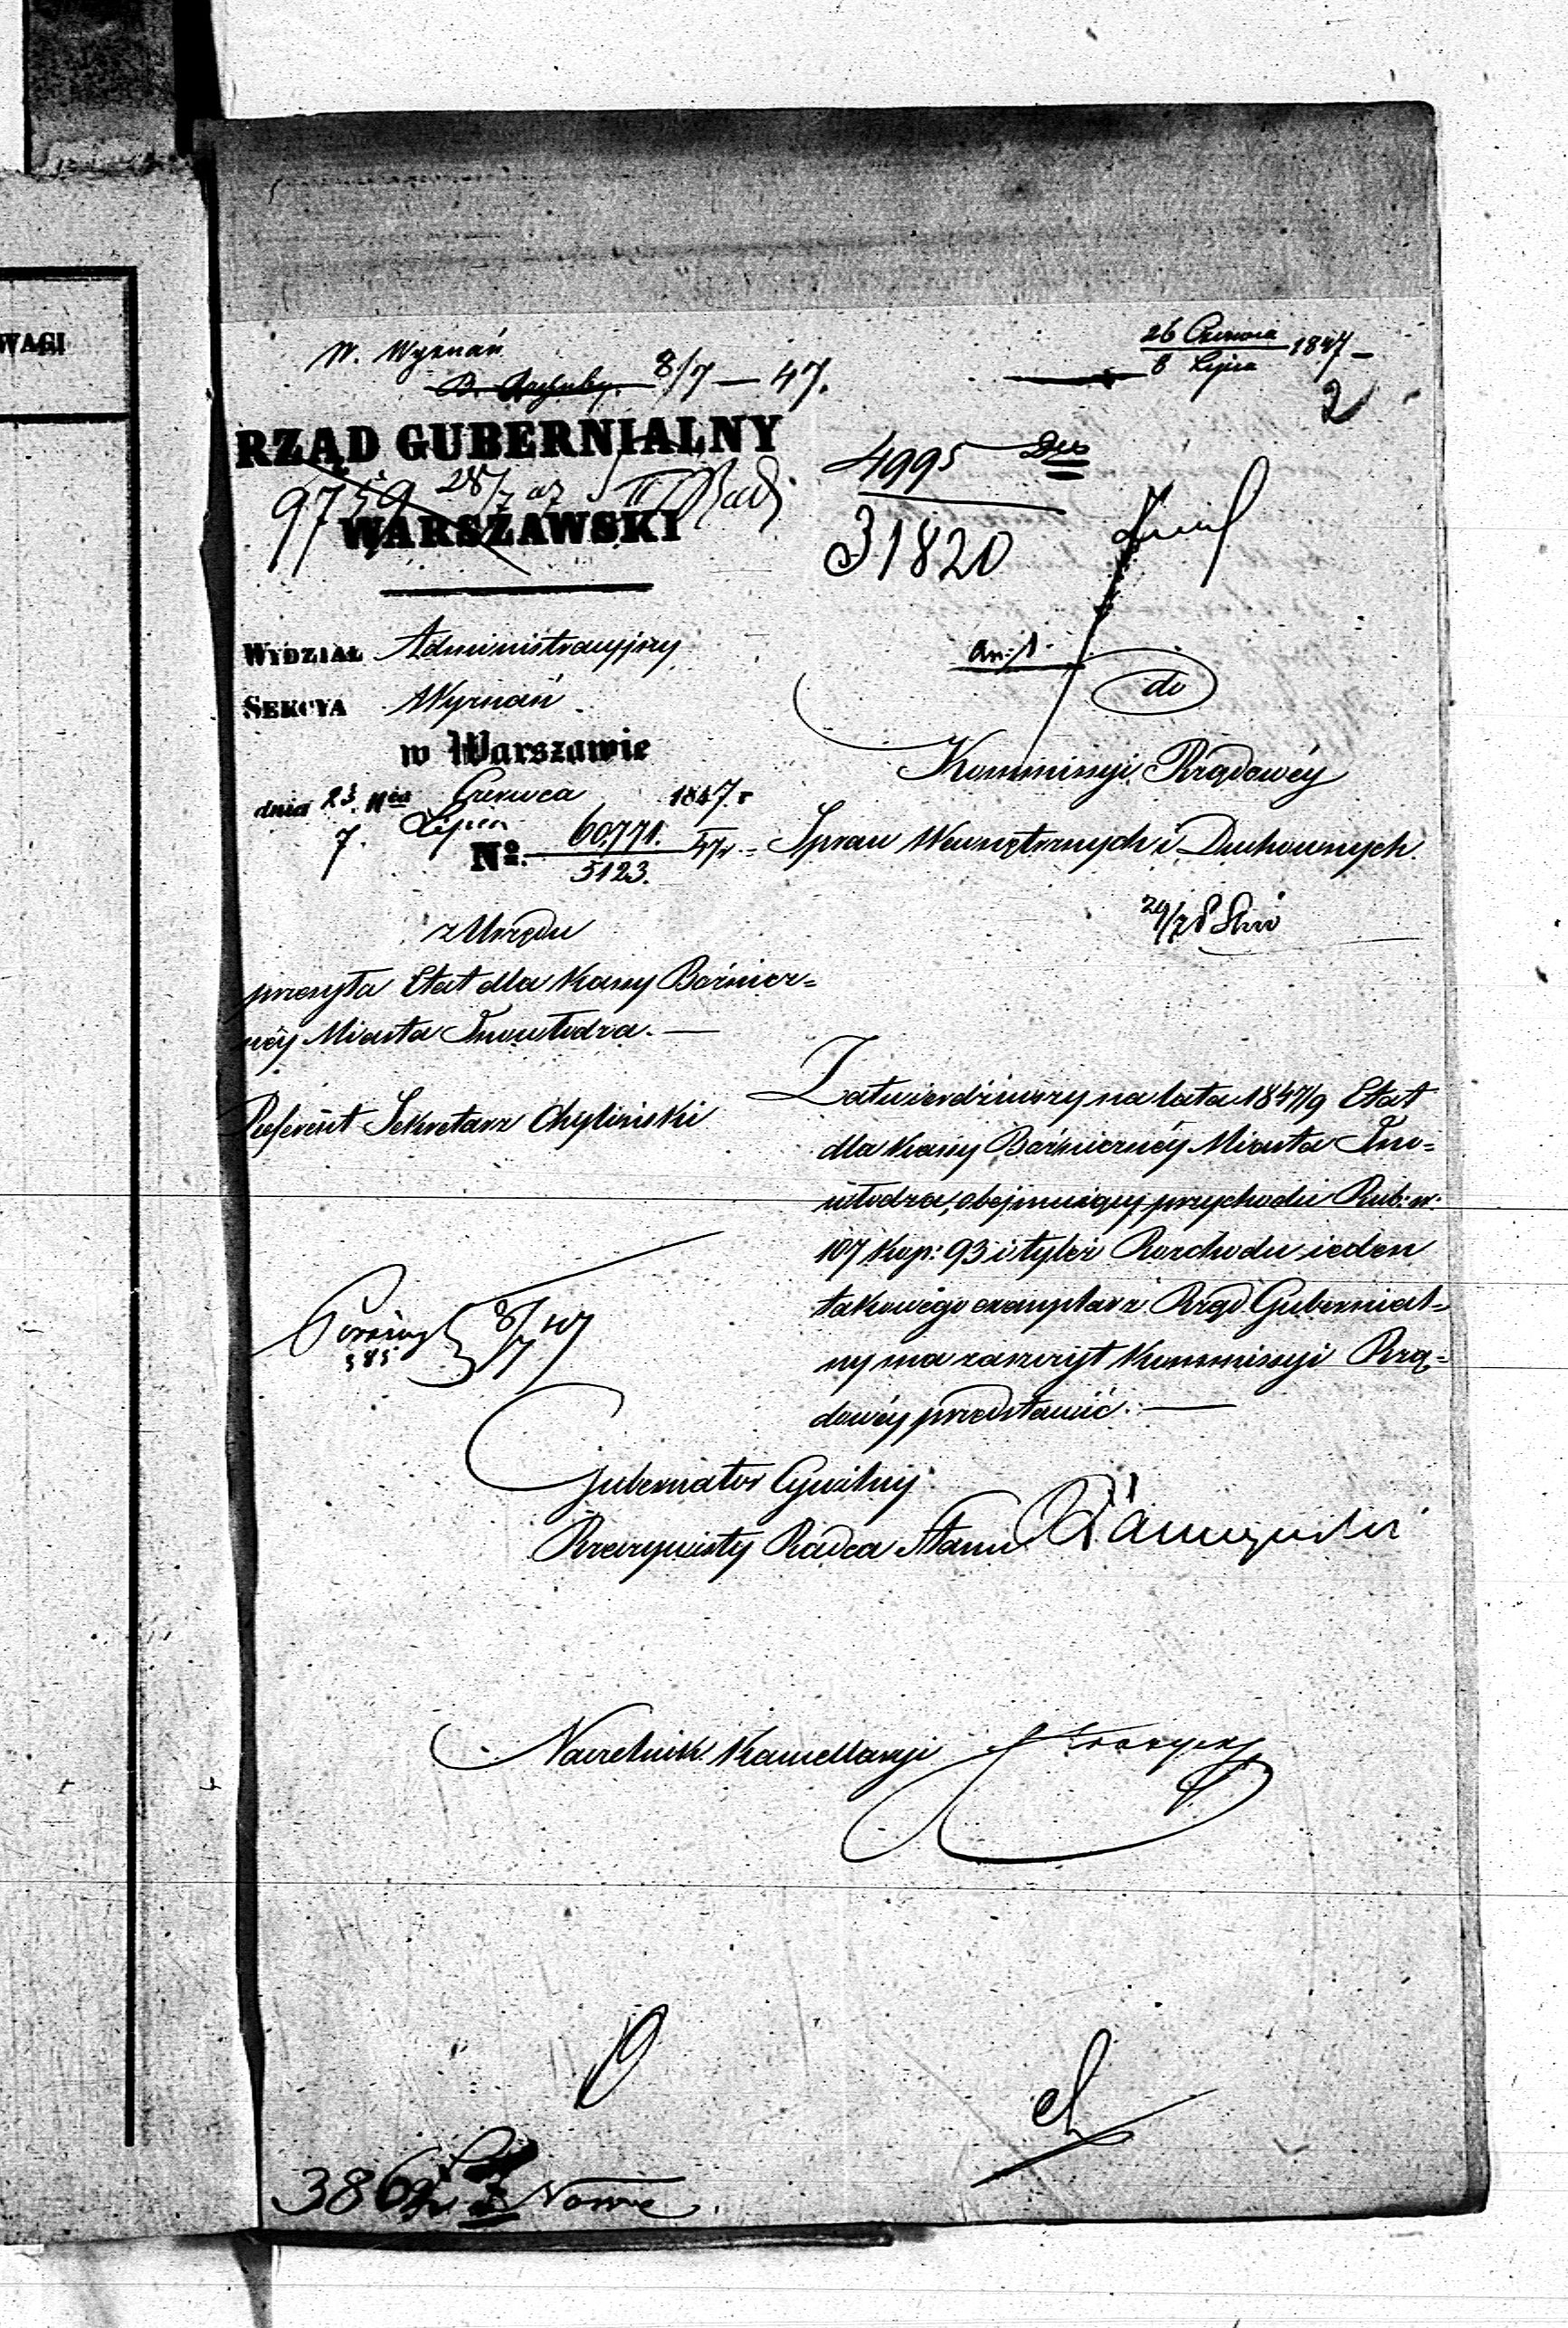 WAGI
W. Wyznań
8/7 — 47.
26 Czerwca
8 Lipca 1847 —
2
RZĄD GUBERNIALNY
9759 28/7 47
WARSZAWSKI
4995
31820
WYDZIAŁ Administracyjny
SEKCYA Wyznań
w Warszawie
dnia 23 Czerwca 1847 r
7. Lipca
No. 60,771. 47r.
5123.
An: 1.
do
Kommissyi Rządowéy
Spraw Wewnętrznych i Duchownych.
29/7
z Urzędu
przesyła Etat dla Kassy Bożnicz=
néy Miasta Inowłodza. —
Referent Sekretarz Chyliński
Zatwierdziwszy na lata 1847/9 Etat
dla Kassy Bożnicznéy Miasta Ino=
włodza, obejmuiący przychodu Rub: sr:
107 kop: 93 i tyleż Rozchodu ieden
takowégo exemplarz Rząd Gubernial=
ny ma zaszczyt Kommissyi Rzą=
dowéy przedstawić. —
8/7 47
585
Gubernator Cywilny
Rzeczywisty Radca Stanu
Naczelnik Kancellaryi
386
Nowe